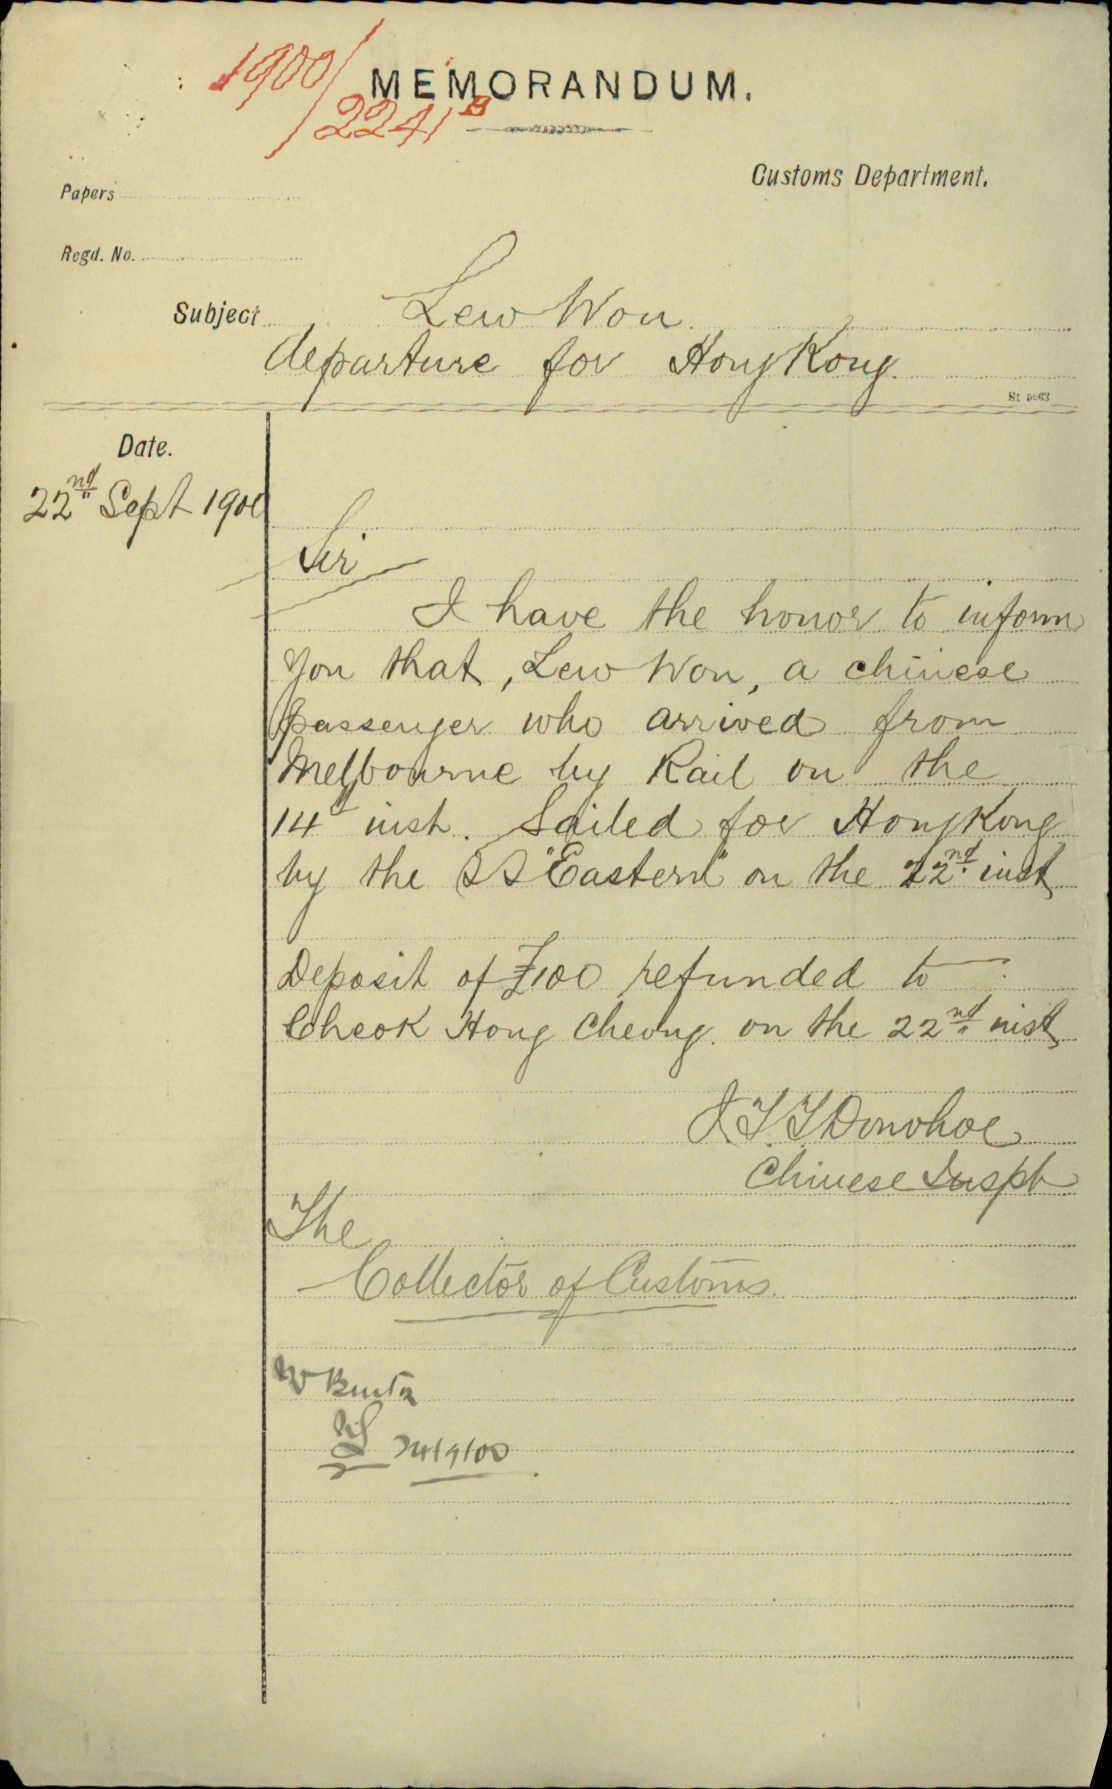 1900/2241 B
MEMORANDUM.
Customs Department.
Papers
Regd. No.
Subject Lew Won
departure for Hong Kong.
Date.
22nd Sept 1900
Sir
I have the honor to inform
you that, Lew Won, a chinese
passenger who arrived from
Melbourne by Rail on the
14th inst. Sailed for Hong Kong
by the SS "Eastern" on the 22nd inst
Deposit of £100 refunded to
Cheok Hong Cheong. on the 22nd inst
J.T.T Donohoe
Chinese Inspr
The
Collector of Customs.
24/9/00